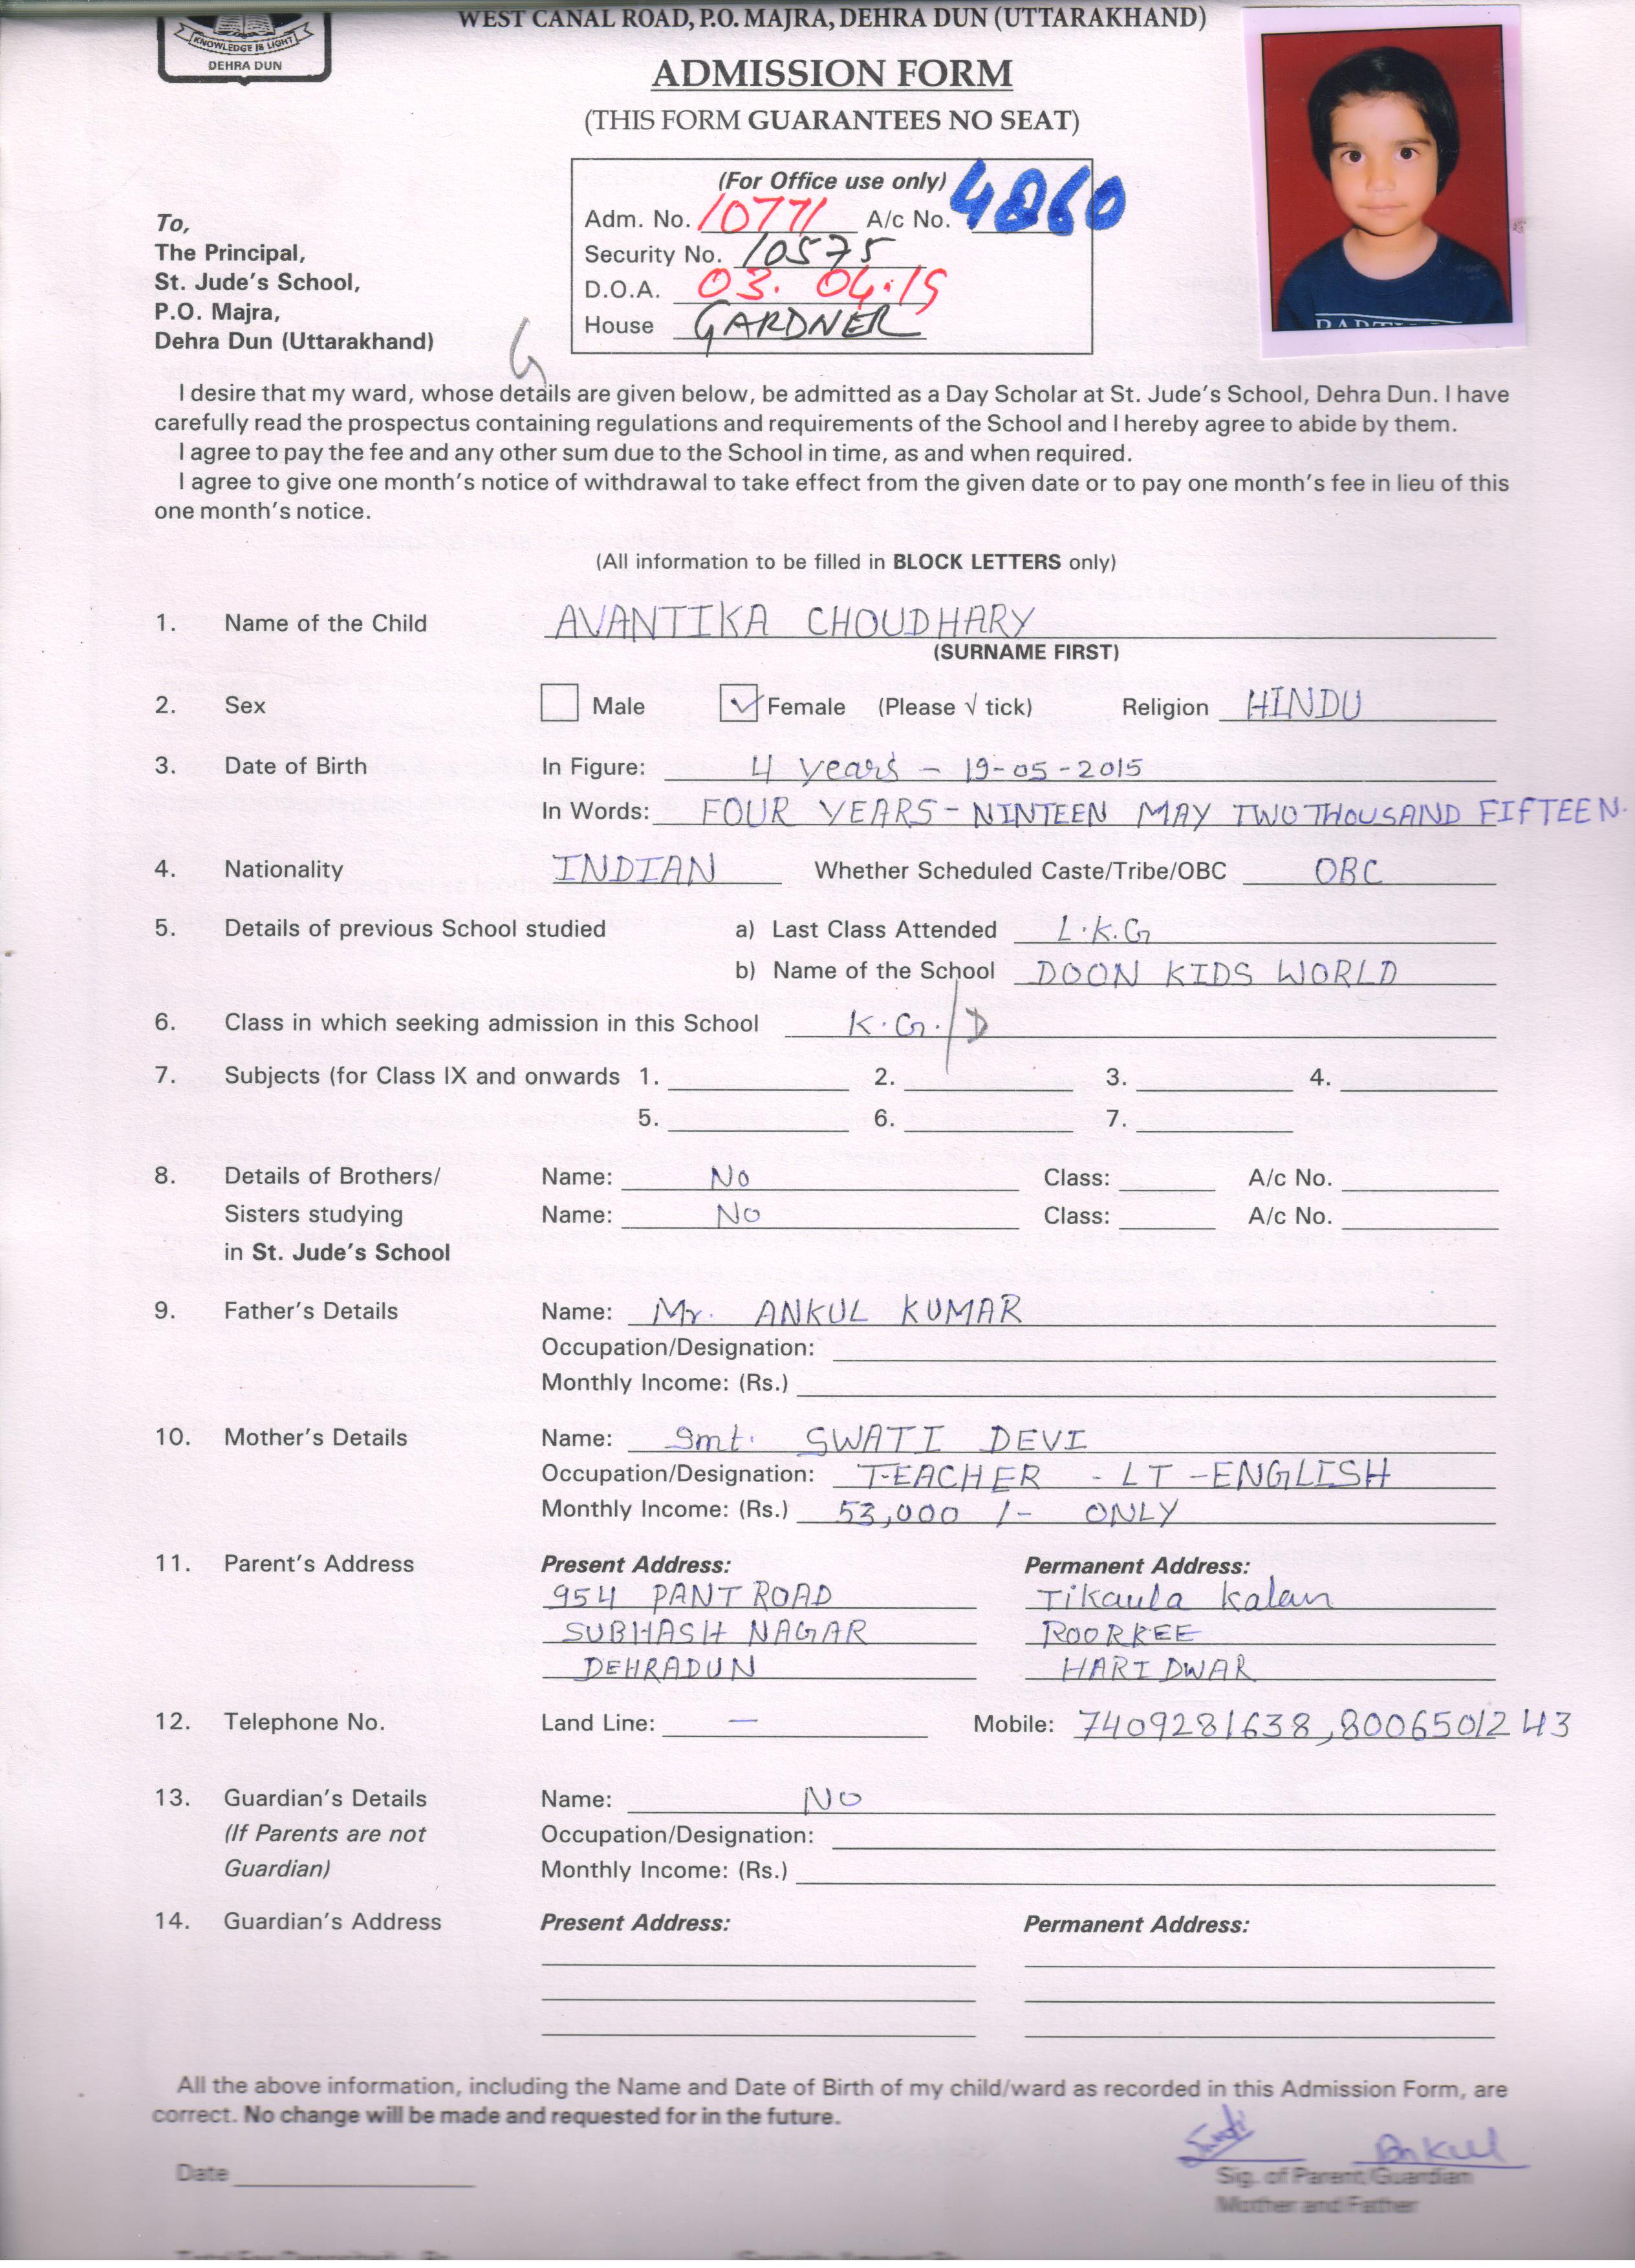 WEST CANAL ROAD, P.O. MAJRA, DEHRA DUN (UTTARAKHAND)
KNOWLEDGE IS LIGHT
DEHRA DUN
ADMISSION FORM
(THIS FORM GUARANTEES NO SEAT)
(For Office use only)
Adm. No. 10771 A/c No. 4860
Security No. 10575
D.O.A. 03. 04.19
House GARDNER
To,
The Principal,
St. Jude's School,
P.O. Majra,
Dehra Dun (Uttarakhand)
G
I desire that my ward, whose details are given below, be admitted as a Day Scholar at St. Jude's School, Dehra Dun. I have
carefully read the prospectus containing regulations and requirements of the School and I hereby agree to abide by them.
I agree to pay the fee and any other sum due to the School in time, as and when required.
I agree to give one month's notice of withdrawal to take effect from the given date or to pay one month's fee in lieu of this
one month's notice.
(All information to be filled in BLOCK LETTERS only)
1. Name of the Child AVANTIKA CHOUDHARY
(SURNAME FIRST)
2. Sex Male ✓ Female (Please √ tick) Religion HINDU
3. Date of Birth In Figure: 4 years - 19-05-2015
In Words: FOUR YEARS - NINTEEN MAY TWO THOUSAND FIFTEEN.
4. Nationality INDIAN Whether Scheduled Caste/Tribe/OBC OBC
5. Details of previous School studied a) Last Class Attended L.K.G
b) Name of the School DOON KIDS WORLD
6. Class in which seeking admission in this School K.G./D
7. Subjects (for Class IX and onwards 1. 2. 3. 4.
5. 6. 7.
8. Details of Brothers/ Name: No Class: A/c No.
Sisters studying Name: No Class: A/c No.
in St. Jude's School
9. Father's Details Name: Mr. ANKUL KUMAR
Occupation/Designation:
Monthly Income: (Rs.)
10. Mother's Details Name: Smt. SWATI DEVI
Occupation/Designation: TEACHER - LT - ENGLISH
Monthly Income: (Rs.) 53,000 /- ONLY
11. Parent's Address Present Address: Permanent Address:
954 PANT ROAD Tikaula Kalan
SUBHASH NAGAR ROORKEE
DEHRADUN HARIDWAR
12. Telephone No. Land Line: — Mobile: 7409281638, 8006501243
13. Guardian's Details Name: No
(If Parents are not Occupation/Designation:
Guardian) Monthly Income: (Rs.)
14. Guardian's Address Present Address: Permanent Address:
All the above information, including the Name and Date of Birth of my child/ward as recorded in this Admission Form, are
correct. No change will be made and requested for in the future.
Ankul
Date Sig. of Parent/Guardian
Mother and Father